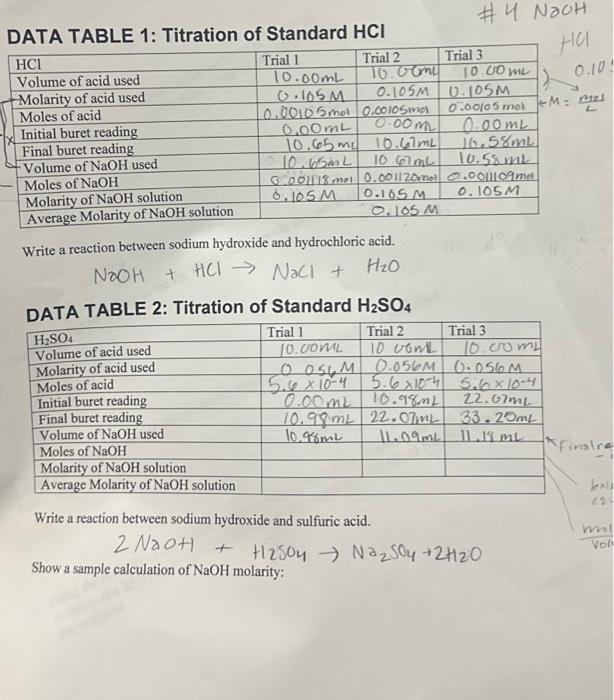 # 4 NaOH
HCl
DATA TABLE 1: Titration of Standard HCl
HCl Trial 1 Trial 2 Trial 3
Volume of acid used 10.00mL 10.00mL 10.00mL 0.10
Molarity of acid used 0.105M 0.105M 0.105M
Moles of acid 0.00105mol 0.00105mol 0.00105mol ←M = mol/L
Initial buret reading 0.00mL 0.00m 0.00mL
Final buret reading 10.65mL 10.67mL 10.58mL
Volume of NaOH used 10.65mL 10.67mL 10.58mL
Moles of NaOH 0.001118mol 0.001120mol 0.0011109mol
Molarity of NaOH solution 0.105M 0.105M 0.105M
Average Molarity of NaOH solution 0.105M
Write a reaction between sodium hydroxide and hydrochloric acid.
NaOH + HCl → NaCl + H2O
DATA TABLE 2: Titration of Standard H₂SO₄
H₂SO₄ Trial 1 Trial 2 Trial 3
Volume of acid used 10.00mL 10.00mL 10.00mL
Molarity of acid used 0.056M 0.056M 0.056M
Moles of acid 5.6 x10-4 5.6 x10-4 5.6x10-4
Initial buret reading 0.00mL 10.98mL 22.07mL
Final buret reading 10.98mL 22.07mL 33.25mL
Volume of NaOH used 10.98mL 11.09mL 11.18mL
Moles of NaOH *Final re
Molarity of NaOH solution
Average Molarity of NaOH solution
Write a reaction between sodium hydroxide and sulfuric acid.
2 NaOH + H2SO4 → Na2SO4 + 2H2O
Show a sample calculation of NaOH molarity: